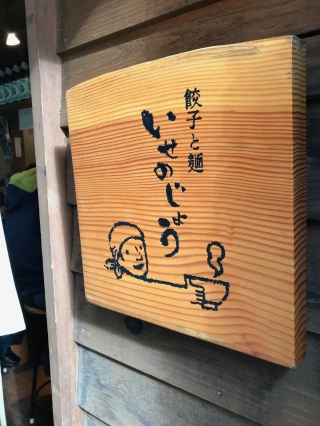 餃子と麺
いせのじょう